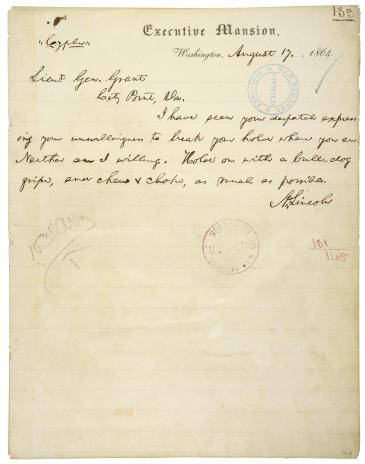 133
"Cypher"
Executive Mansion,
Washington, August 17, 1864
Lieut. Gen. Grant
City Point, Va.
I have seen your despatch express-
ing your unwillingness to break your hold where you are.
Neither am I willing. Hold on with a bull-dog
gripe, and chew & choke, as much as possible.
A. Lincoln